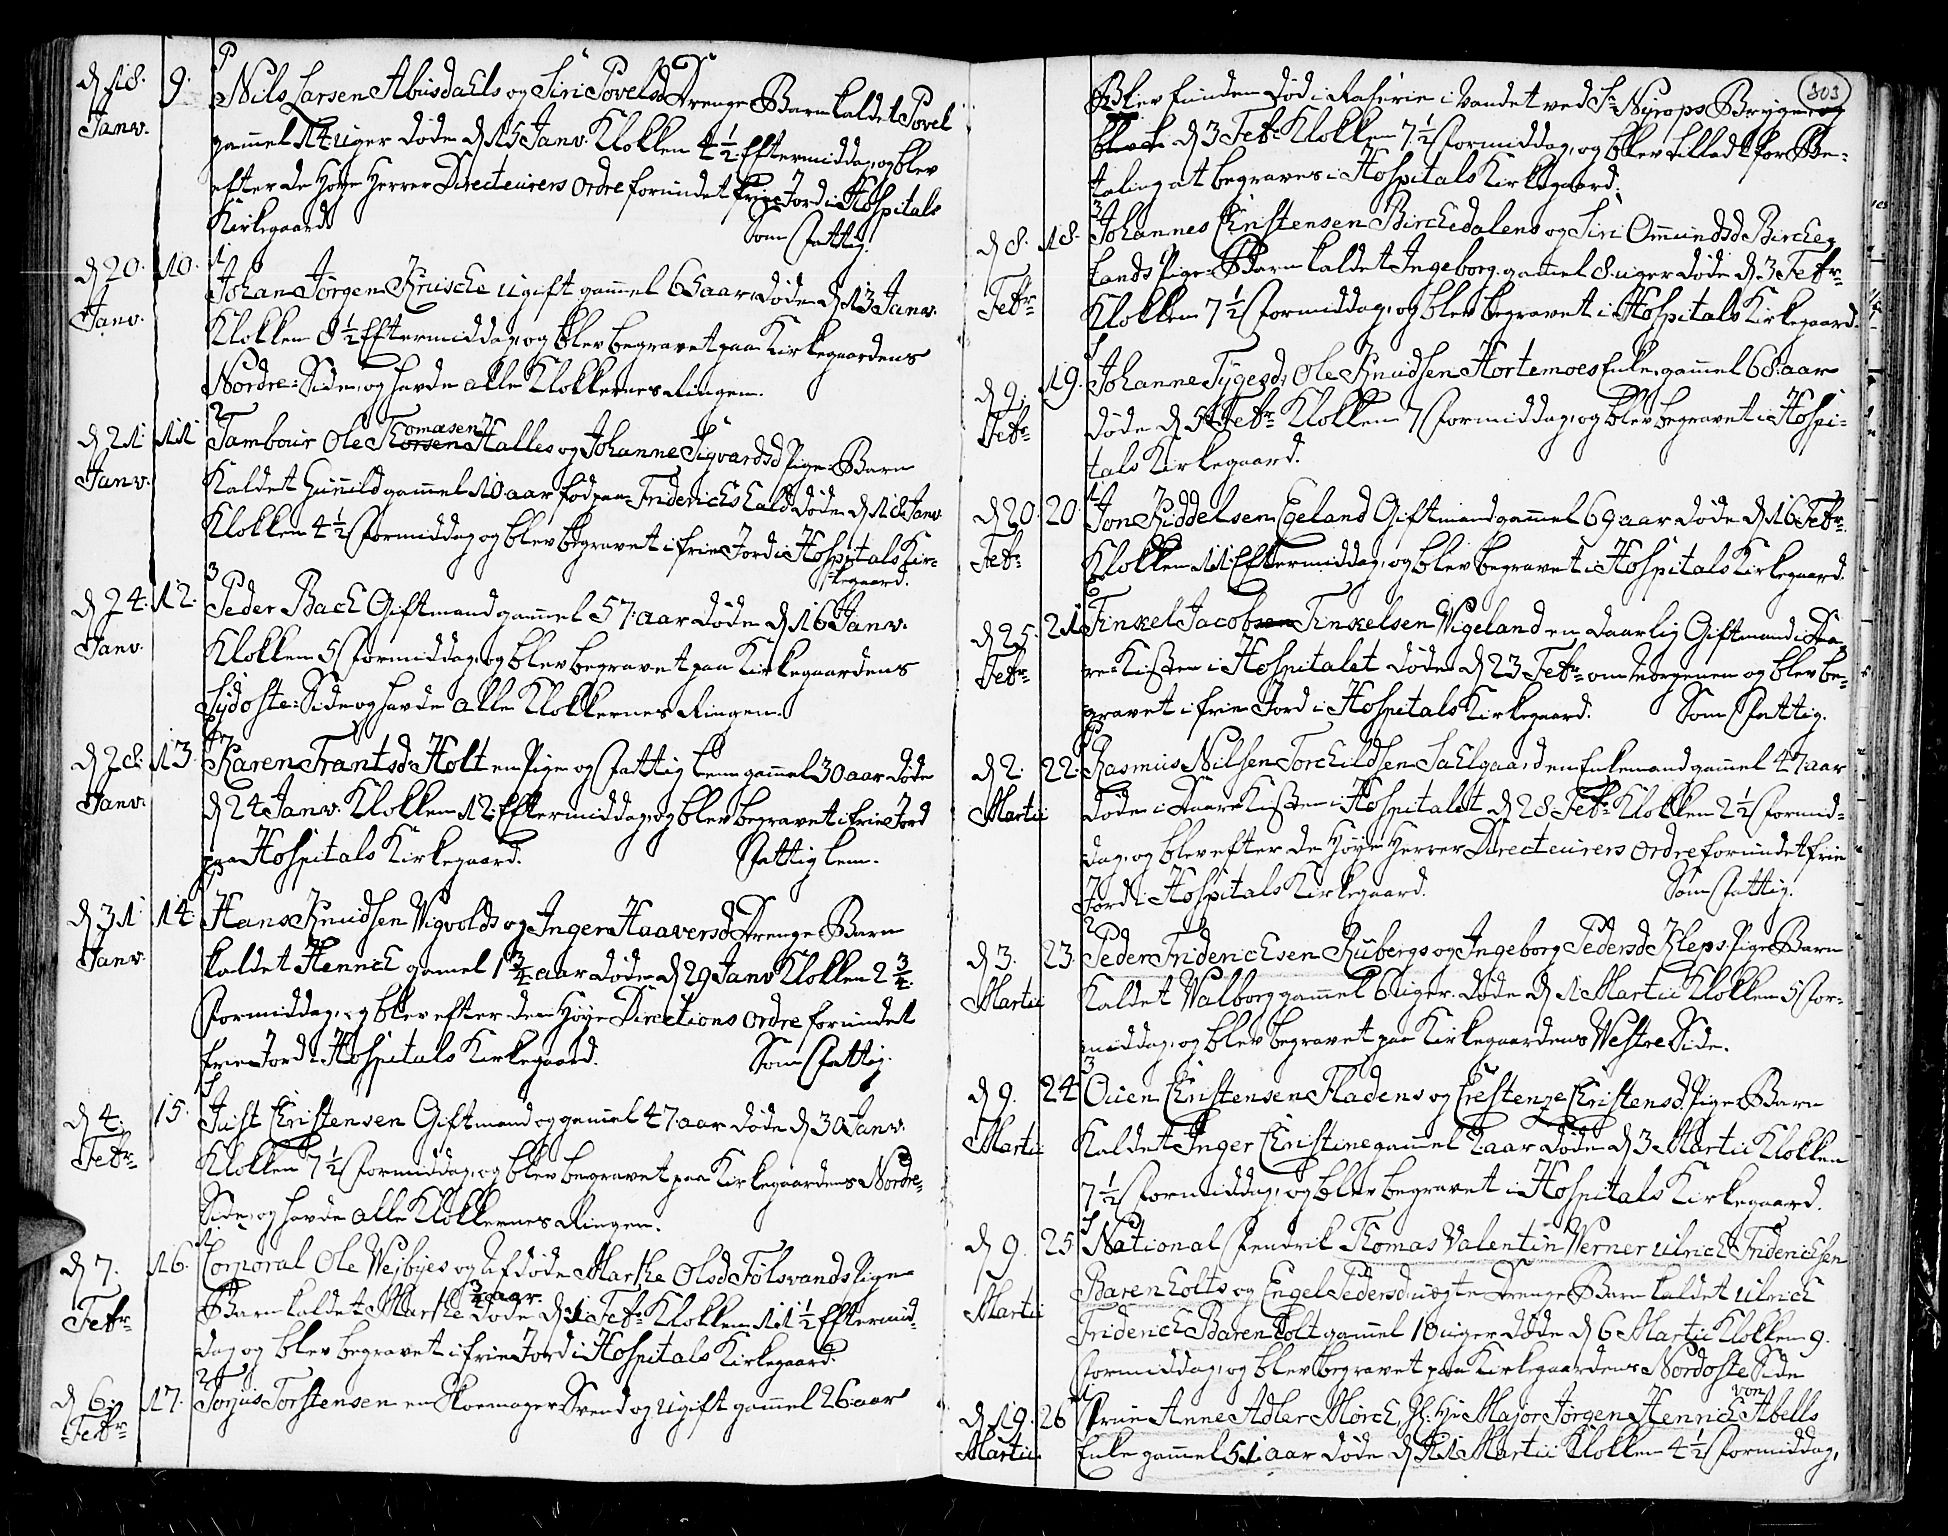 d 18. Janv. 9. Nils Larsen Abusdahls og Siri Povelsd Drenge Barn kaldet Povel
gammel 14 uger døde d 15 Janv. Klokken 4 1/2 Eftermiddag, og blev
efter de Høye Herrer Directeurers Ordre forundet frie Jord i Hospitals
Kirkegaard Som Fattig.
d 20. Janv. 10. Johan Jørgen Krusche ugift gammel 65 aar, døde d 13 Janv.
Klokken 8 1/2 Eftermiddag, og blev begravet paa Kirkegaardens
Nordre-Side, og havde alle Klokkernes Ringen.
d 21 Janv. 11 Tambour Ole Thomæsen Halles og Johanne Sigvardsd Pige-Barn
Kaldet Gunnild gammel 10 aar fød paa Friderichshald døde d 18 Janv.
Klokken 4 1/2 Formiddag og blev begravet i frie Jord i Hospitals Kir-
kegaard.
d 24. Janv. 12. Peder Bach Giftmand gammel 57 aar døde d 16 Janv.
Klokken 5 Formiddag, og blev begravet paa Kirkegaardens
Sydoste-Side og havde alle Klokkernes Ringen.
d 28. Janv. 13. Karen Frantsd Holt en Pige og Fattig lem gammel 30 aar døde
d 24 Janv. Klokken 12 Eftermiddag, og blev begravet i frie Jord
paa Hospitals Kirkegaard. Fattig lem.
d 31 Janv. 14. Hans Knudsen Vigvolds og Inger Haaversd Drenge Barn
kaldet Hennich gamel 1 3/4 aar døde d 29 Janv Klokken 2 3/4
Formiddag, og blev efter den Høye Directions Ordre forundet
frie Jord i Hospitals Kirkegaard. Som Fattig.
d 4. Febr. 15. Just Christensen Giftmand og gammel 47 aar døde d 30 Janv.
Klokken 7 1/2 Formiddag, og blev begravet paa Kirkegaardens Nordre-
Side, og havde alle Klokkernes Ringen.
d 7. Febr 16. Corporal Ole Wejbyes og Afdøde Marthe Olsd Følsvands Pige-
Barn kaldet Marthe 3/4 aar. døde d 1 Febr. Klokken 11 1/2 Eftermid-
dag og blev begravet i frie Jord i Hospitals Kirkegaard.
d 6. Febr 17. Torjus Torstensen en Skoemager Svend og ugift gammel 26 aar
303
Blev funden død i i Vandet ved Sr Nyrops Brygge og
d 3 Febr. Klokken 7 1/2 Formiddag, og blev tilladt for Be-
taling at begraves i Hospitals Kirkegaard.
d 8. Febr 18. Johannes Christensen Birchedalens og Siri Omundsd Birche-
lands Pige-Barn kaldet Ingeborg gamel 8 uger døde d 3 Febr
Klokken 7 1/2 Formiddag, og blev begravet i Hospitals Kirkegaard.
d 9. Febr. 19. Johanne Tygesd, Ole Knudsen Hortemoes Enke, gammel 68 aar
døde d 5 Febr Klokken 7 Formiddag, og blev begravet i Hospi-
tals Kirkegaard.
d 20. Febr 20. Jon Kiddelsen Egeland Giftmand gammel 69 aar døde d 16 Febr.
Klokken 11 Eftermiddag, og blev begravet i Hospitals Kirkegaard.
d 25. Febr 21 Finkel Jacobsen Finkelsen Vigeland en daarlig Giftmand i Daa-
re-Kisten i Hospitalet døde d 23 Febr om Morgenen og blev be-
gravet i frie Jord i Hospitals Kirkegaard. Som Fattig.
d 2. Martii 22. Rasmus Nilsen Torchildsen Sahlgaard en Enkemand gammel 47 aar
døde i Daare Kisten i Hospitalet d 28 Febr. Klokken 2 1/2 Formid-
dag, og blev efter de Høye Herrer Directeurers Ordre forundet frie
Jord i Hospitals Kirkegaard. Som Fattig.
d 3. Martii 23. Peder Friderichsen Rübergs og Ingeborg Pedersd Kleps Pige Barn
Kaldet Valborg gammel 6 uger. døde d 1 Martii Klokken 5 For-
middag, og blev begravet paa Kirkegaardens Vestre Side.
d 9. Martii 24 Ouen Christensen Fladens og Crestenze Christensd. Pige Barn
Kaldet Inger Christine gammel 2 aar døde d 3 Martii Klokken
7 1/2 Formiddag, og blev begravet i Hospitals Kirkegaard.
d 9. Martii 25 National Fendrik Thomas Valentin Verner Ulrich Friderichsen
Barenholts og Engel Pedersd uægte Drenge Barn kaldet Ulrich
Friderich Barenholt gammel 18 uger døde d 6 Martii Klokken 9.
Formiddag, og blev begravet paa Kirkegaardens Nordoste Side
d 19. Martii. 26 Frue Anne Adler Mørch, Sl. Hr Major Jørgen Hennich von Abells
Enke gammel 51 aar døde d 11 Martii Klokken 4 1/2 Formiddag,